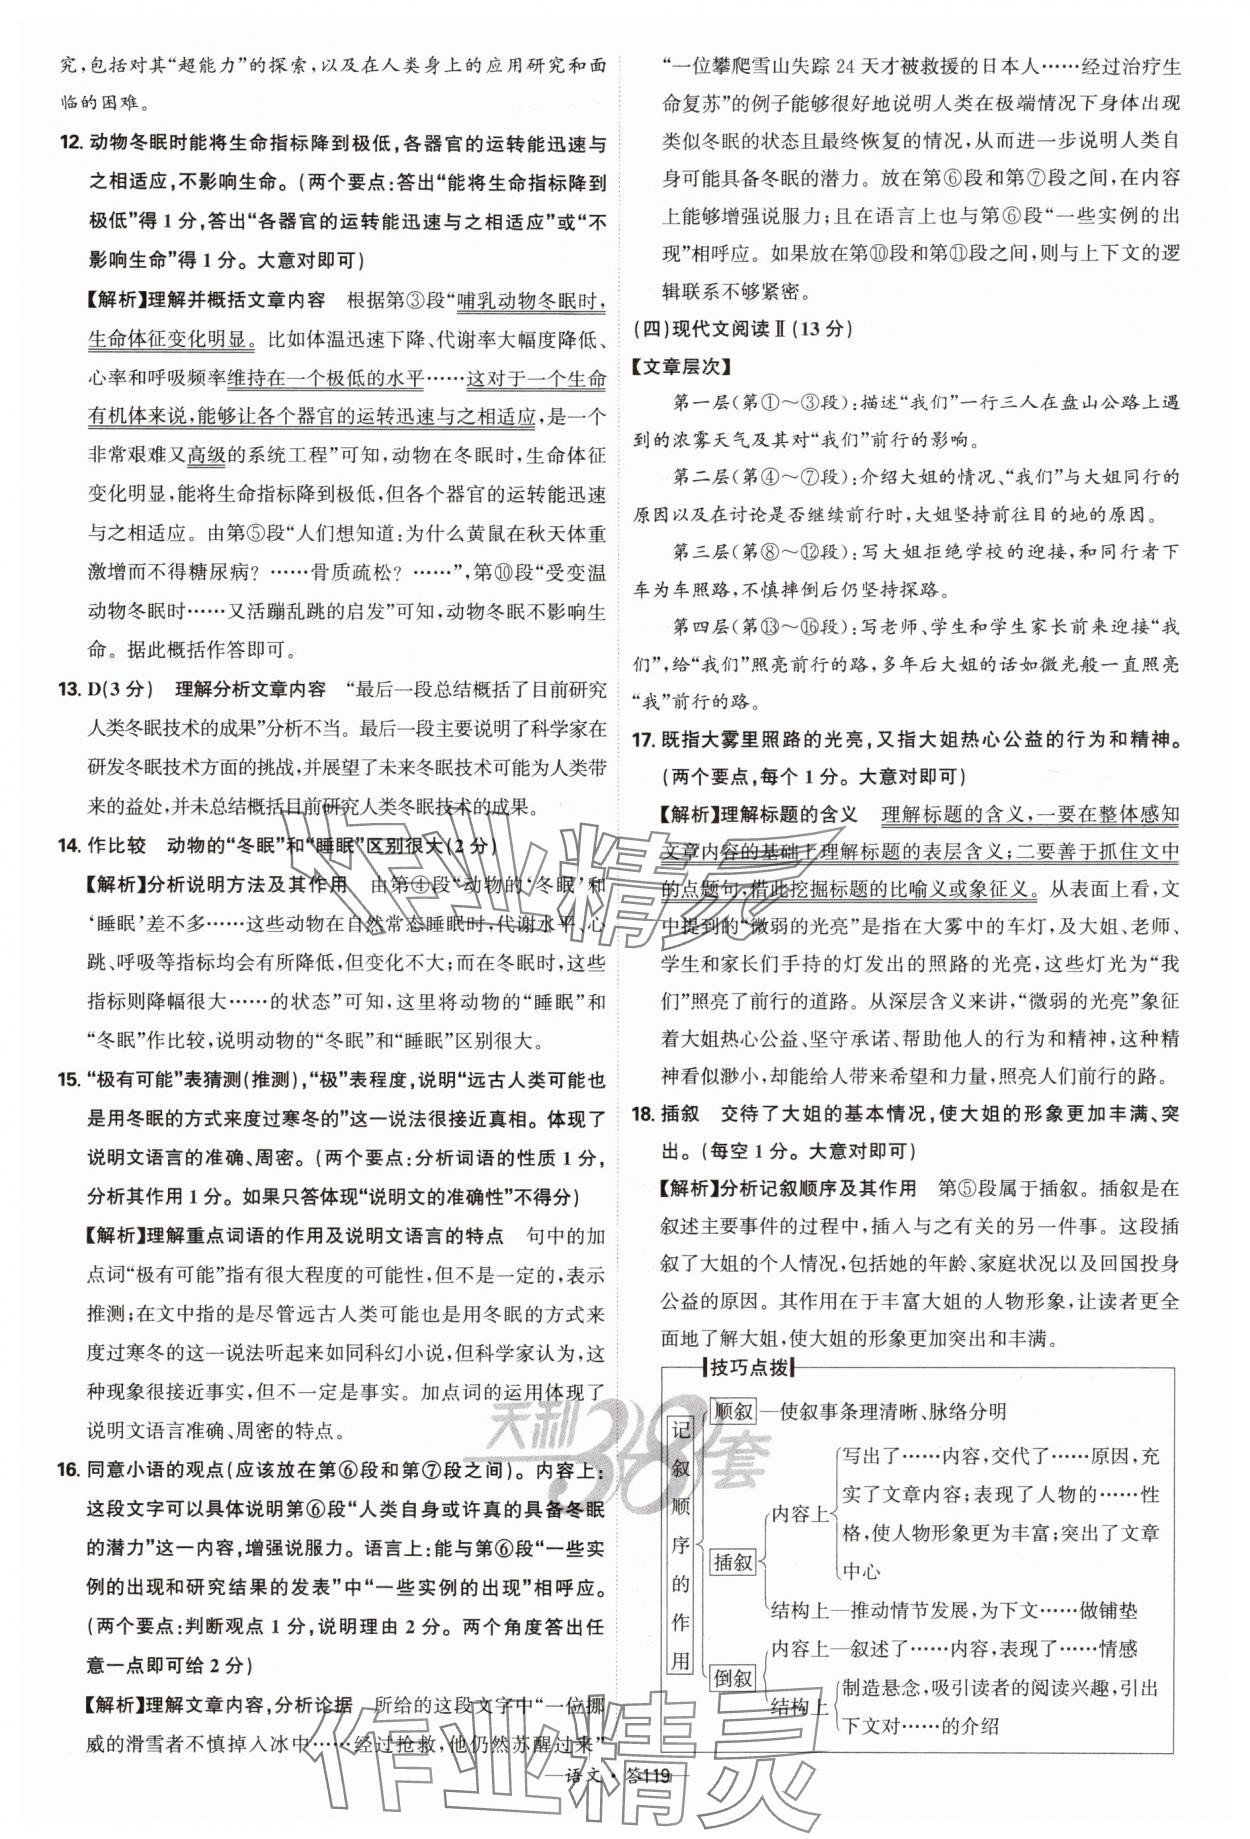 究,包括对其“超能力”的探索,以及在人类身上的应用研究和面
临的困难。
12. 动物冬眠时能将生命指标降到极低,各器官的运转能迅速与
之相适应,不影响生命。(两个要点:答出“能将生命指标降到
极低”得1分,答出“各器官的运转能迅速与之相适应”或“不
影响生命”得1分。大意对即可)
【解析】理解并概括文章内容 根据第③段“哺乳动物冬眠时,
生命体征变化明显。比如体温迅速下降、代谢率大幅度降低、
心率和呼吸频率维持在一个极低的水平……这对于一个生命
有机体来说,能够让各个器官的运转迅速与之相适应,是一个
非常艰难又高级的系统工程”可知,动物在冬眠时,生命体征
变化明显,能将生命指标降到极低,但各个器官的运转能迅速
与之相适应。由第⑤段“人们想知道:为什么黄鼠在秋天体重
激增而不得糖尿病?……骨质疏松?……”,第⑩段“受变温
动物冬眠时……又活蹦乱跳的启发”可知,动物冬眠不影响生
命。据此概括作答即可。
13. D(3分) 理解分析文章内容 “最后一段总结概括了目前研究
人类冬眠技术的成果”分析不当。最后一段主要说明了科学家在
研发冬眠技术方面的挑战,并展望了未来冬眠技术可能为人类带
来的益处,并未总结概括目前研究人类冬眠技术的成果。
14. 作比较 动物的“冬眠”和“睡眠”区别很大(2分)
【解析】分析说明方法及其作用 由第④段“动物的‘冬眠’和
‘睡眠’差不多……这些动物在自然常态睡眠时,代谢水平、心
跳、呼吸等指标均会有所降低,但变化不大;而在冬眠时,这些
指标则降幅很大……的状态”可知,这里将动物的“睡眠”和
“冬眠”作比较,说明动物的“冬眠”和“睡眠”区别很大。
15. “极有可能”表猜测(推测),“极”表程度,说明“远古人类可能也
是用冬眠的方式来度过寒冬的”这一说法很接近真相。体现了
说明文语言的准确、周密。(两个要点:分析词语的性质1分,
分析其作用1分。如果只答体现“说明文的准确性”不得分)
【解析】理解重点词语的作用及说明文语言的特点 句中的加
点词“极有可能”指有很大程度的可能性,但不是一定的,表示
推测;在文中指的是尽管远古人类可能也是用冬眠的方式来
度过寒冬的这一说法听起来如同科幻小说,但科学家认为,这
种现象很接近事实,但不一定是事实。加点词的运用体现了
说明文语言准确、周密的特点。
16. 同意小语的观点(应该放在第⑥段和第⑦段之间)。内容上:
这段文字可以具体说明第⑥段“人类自身或许真的具备冬眠
的潜力”这一内容,增强说服力。语言上:能与第⑥段“一些实
例的出现和研究结果的发表”中“一些实例的出现”相呼应。
(两个要点:判断观点1分,说明理由2分。两个角度答出任
意一点即可给2分)
【解析】理解文章内容,分析论据 所给的这段文字中“一位挪
威的滑雪者不慎掉入冰中……经过抢救,他仍然苏醒过来”
“一位攀爬雪山失踪24天才被救援的日本人……经过治疗生
命复苏”的例子能够很好地说明人类在极端情况下身体出现
类似冬眠的状态且最终恢复的情况,从而进一步说明人类自
身可能具备冬眠的潜力。放在第⑥段和第⑦段之间,在内容
上能够增强说服力;且在语言上也与第⑥段“一些实例的出
现”相呼应。如果放在第⑩段和第⑪段之间,则与上下文的逻
辑联系不够紧密。
(四)现代文阅读Ⅱ(13分)
【文章层次】
第一层(第①~③段):描述“我们”一行三人在盘山公路上遇
到的浓雾天气及其对“我们”前行的影响。
第二层(第④~⑦段):介绍大姐的情况、“我们”与大姐同行的
原因以及在讨论是否继续前行时,大姐坚持前往目的地的原因。
第三层(第⑧~⑫段):写大姐拒绝学校的迎接,和同行者下
车为车照路,不慎摔倒后仍坚持探路。
第四层(第⑬~⑯段):写老师、学生和学生家长前来迎接“我
们”,给“我们”照亮前行的路,多年后大姐的话如微光般一直照亮
“我”前行的路。
17. 既指大雾里照路的光亮,又指大姐热心公益的行为和精神。
(两个要点,每个1分。大意对即可)
【解析】理解标题的含义 理解标题的含义,一要在整体感知
文章内容的基础上理解标题的表层含义;二要善于抓住文中
的点题句,借此挖掘标题的比喻义或象征义。从表面上看,文
中提到的“微弱的光亮”是指在大雾中的车灯,及大姐、老师、
学生和家长们手持的灯发出的照路的光亮,这些灯光为“我
们”照亮了前行的道路。从深层含义来讲,“微弱的光亮”象征
着大姐热心公益、坚守承诺、帮助他人的行为和精神,这种精
神看似渺小,却能给人带来希望和力量,照亮人们前行的路。
18. 插叙 交待了大姐的基本情况,使大姐的形象更加丰满、突
出。(每空1分。大意对即可)
【解析】分析记叙顺序及其作用 第⑤段属于插叙。插叙是在
叙述主要事件的过程中,插入与之有关的另一件事。这段插
叙了大姐的个人情况,包括她的年龄、家庭状况以及回国投身
公益的原因。其作用在于丰富大姐的人物形象,让读者更全
面地了解大姐,使大姐的形象更加突出和丰满。
技巧点拨
记叙顺序的作用
顺叙—使叙事条理清晰、脉络分明
插叙
内容上
写出了……内容,交代了……原因,充
实了文章内容;表现了人物的……性
格,使人物形象更为丰富;突出了文章
中心
结构上—推动情节发展,为下文……做铺垫
倒叙
内容上—叙述了……内容,表现了……情感
结构上
制造悬念,吸引读者的阅读兴趣,引出
下文对……的介绍
作业精灵
天利38套
作业精灵
语文·答119